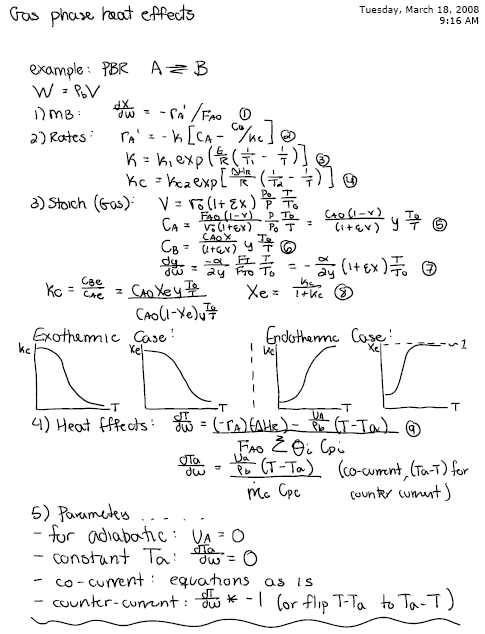 Gas phase heat effects
Tuesday, March 18, 2008
9:16 AM
example: PBR A ⇌ B
W = ρbV
1) MB: dX/dW = -rA'/FA0 ①
2) Rates: rA' = -k[CA - CB/KC] ②
k = k1 exp(E/R(1/T1 - 1/T)) ③
KC = KC2 exp[ΔHR/R (1/T2 - 1/T)] ④
3) Stoich (Gas): V = v0(1+εX) P0/P T/T0
CA = FA0(1-X)/v0(1+εX) P/P0 T0/T = CA0(1-X)/(1+εX) y T0/T ⑤
CB = CA0X/(1+εX) y T0/T ⑥
dy/dW = -α/2y FT/FT0 T/T0 = -α/2y (1+εX) T/T0 ⑦
KC = CBe/CAe = CA0Xe y T0/T / CA0(1-Xe) y T0/T Xe = KC/1+KC ⑧
Exothermic Case: Endothermic Case:
KC Xe KC Xe 1
T T T T
4) Heat Effects: dT/dW = (-rA)(ΔHR) - UA/ρb (T-Ta) / FA0 Σ θi Cpi ⑨
dTa/dW = Ua/ρb (T-Ta) / ṁc Cpc (co-current, (Ta-T) for
counter current)
5) Parameters . . . . .
- for adiabatic: UA = 0
- constant Ta: dTa/dW = 0
- co-current: equations as is
- counter-current: dT/dW * -1 (or flip T-Ta to Ta-T)